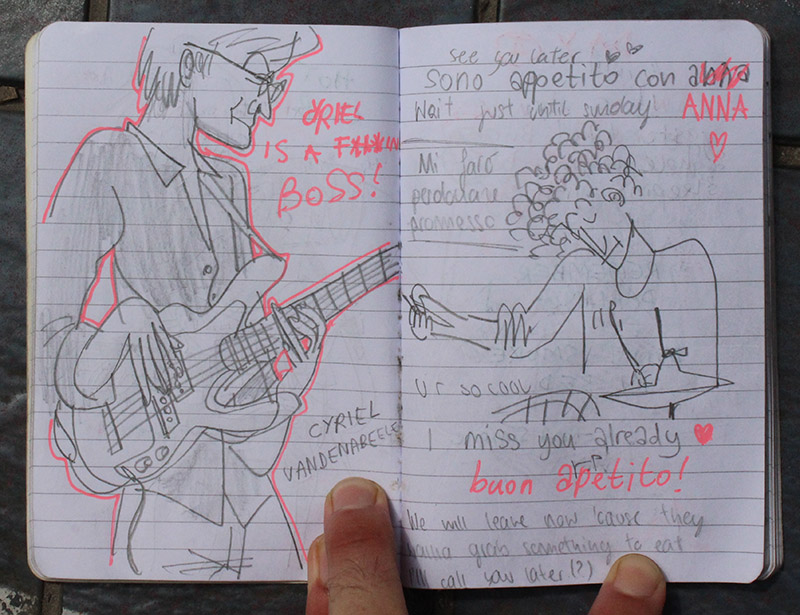 CYRIEL
IS A F***IN
BOSS!
CYRIEL
VANDENABEELE
see you later
sono appetito con
ANNA
Wait just until sunday!
Mi farò
perdonare
promesso
U r so cool
I miss you already
buon appetito!
We will leave now 'cause they
wanna grab something to eat
I'll call you later (?)